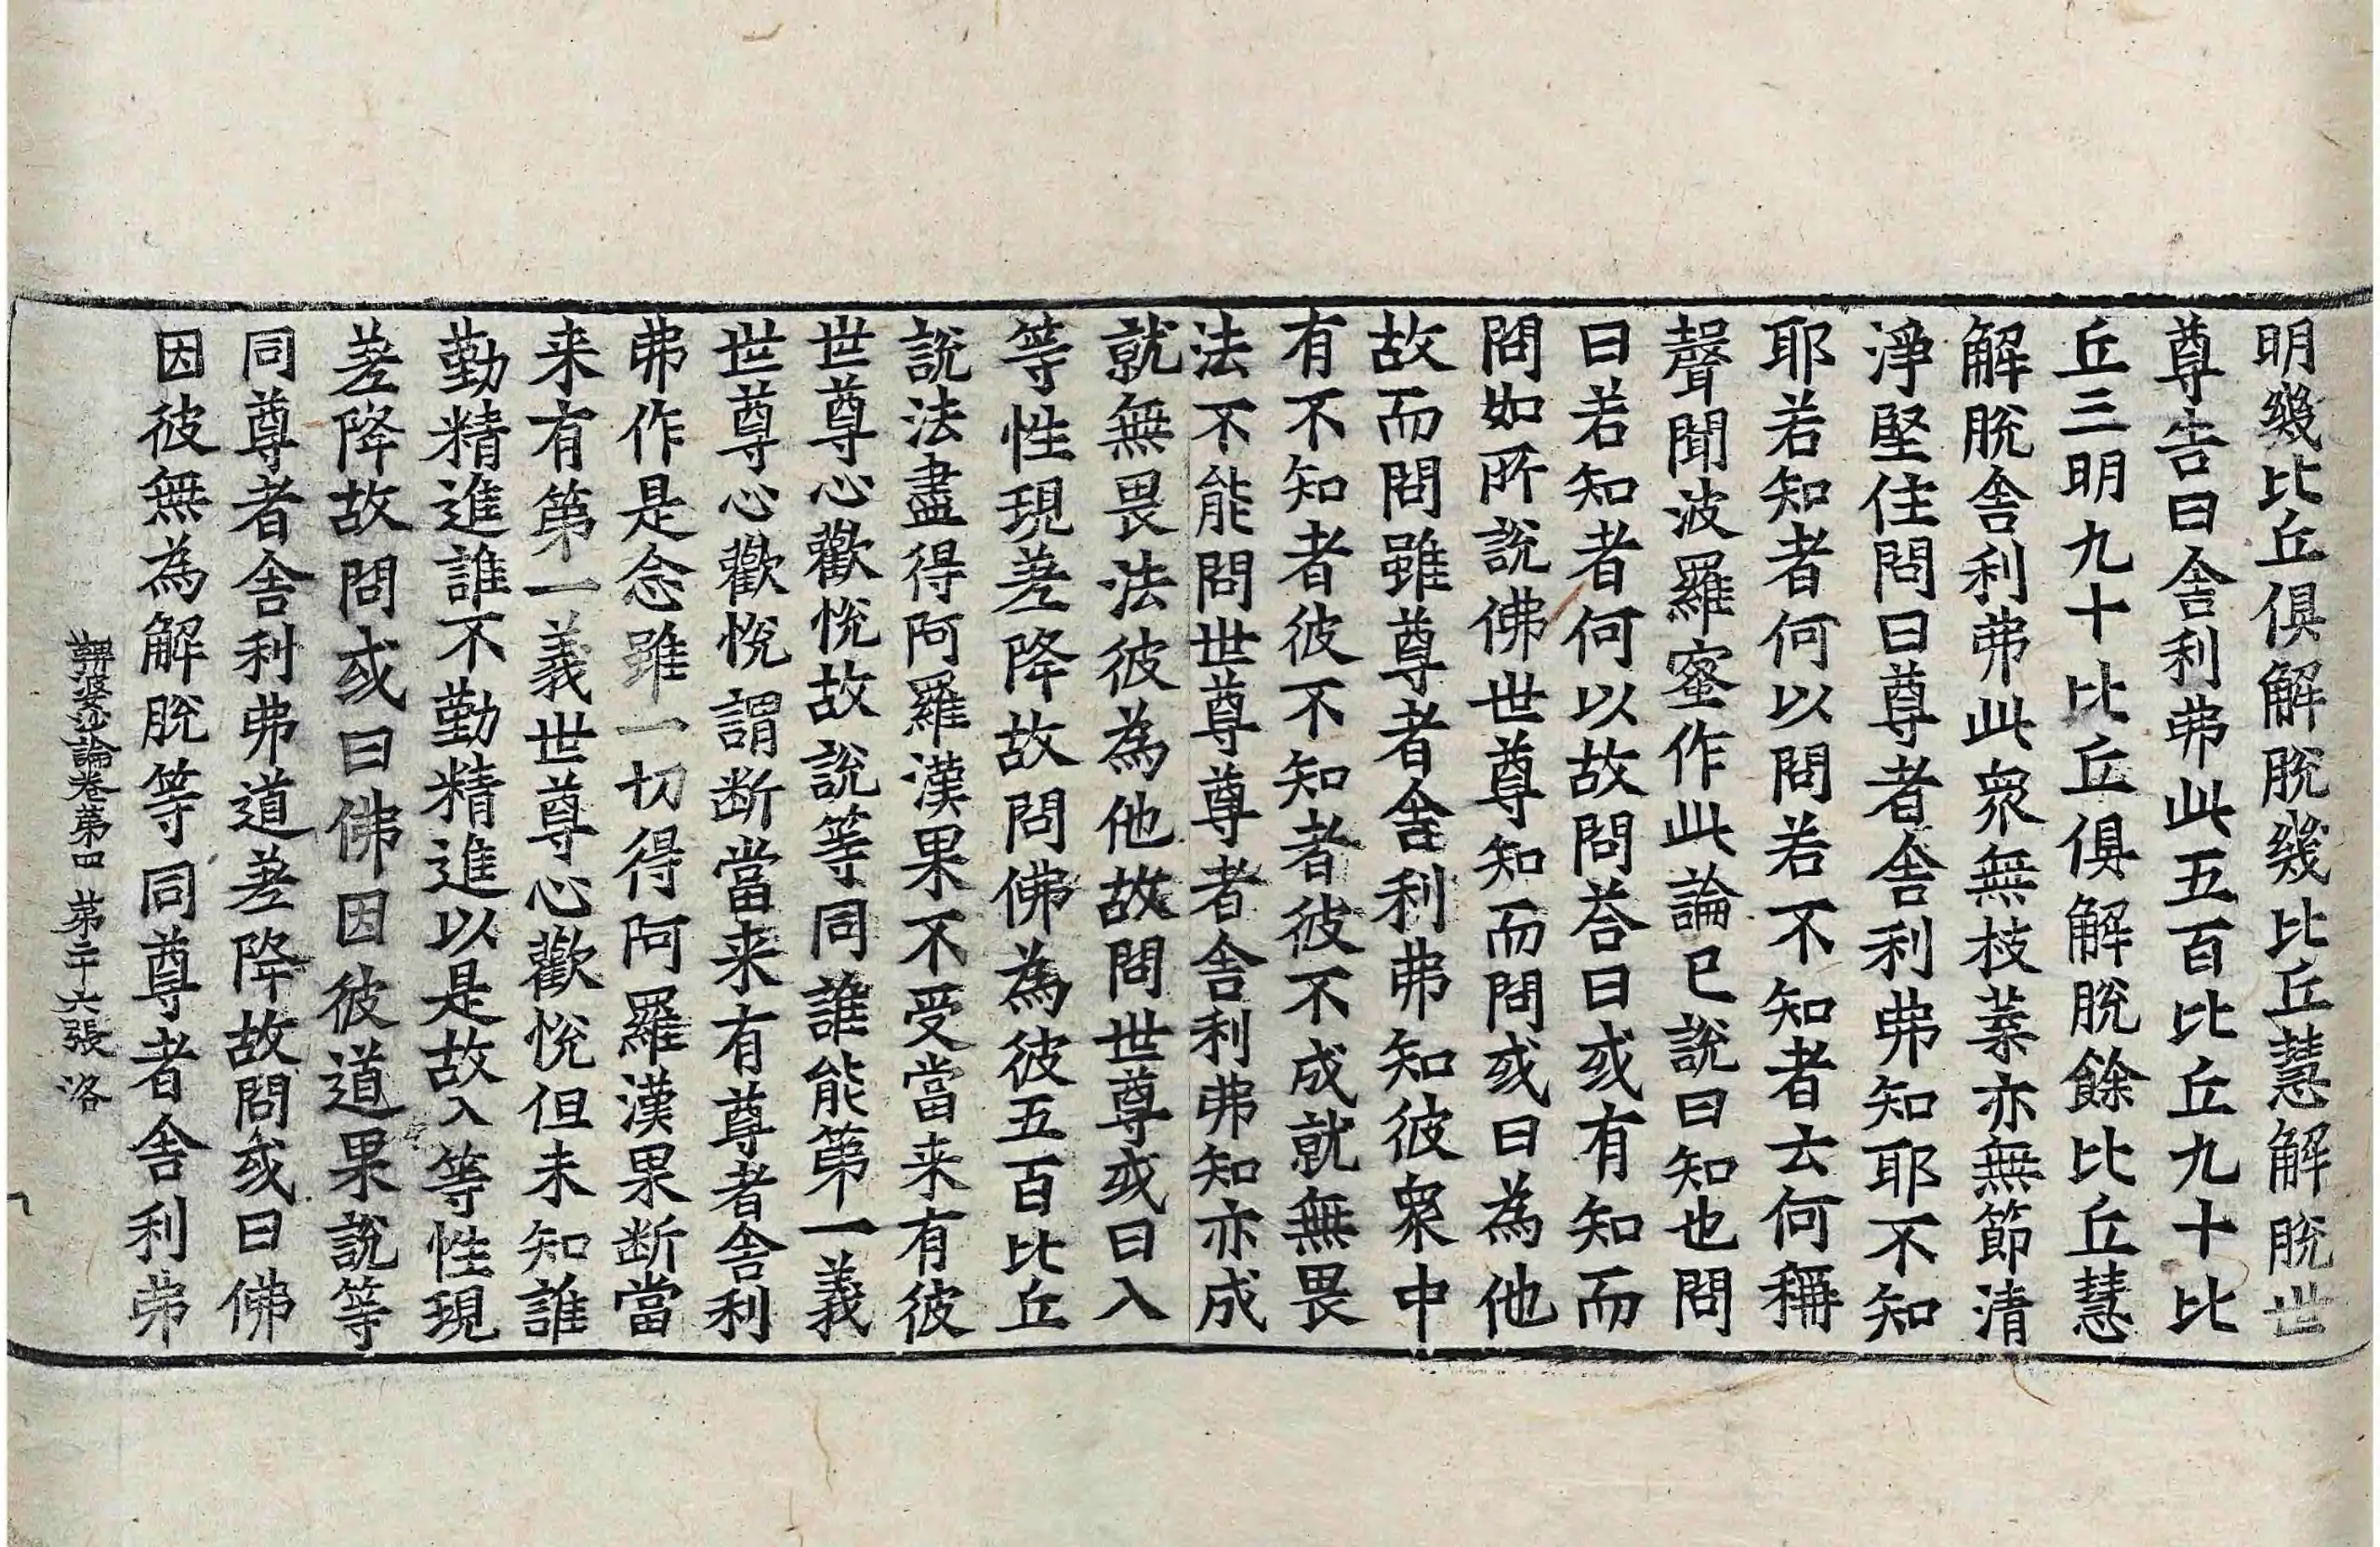 明幾比丘俱解脫幾比丘慧解脫世
尊告曰舎利弗此五百比丘九十比
丘三明九十比丘俱解脫餘比丘慧
解脫舎利弗此衆無枝葉亦無節清
淨堅住問曰尊者舎利弗知耶不知
耶若知者何以問若不知者云何稱
聲聞波羅蜜作此論已說曰知也問
曰若知者何以故問荅曰或有知而
問如所說佛世尊知而問或曰為他
故而問雖尊者舎利弗知彼衆中
有不知者彼不知者彼不成就無畏
法不能問世尊尊者舎利弗知亦成
就無畏法彼為他故問世尊或曰入
等性現差降故問佛為彼五百比丘
說法盡得阿羅漢果不受當来有彼
世尊心歡悅故說等同誰能第一義
世尊心歡悅謂断當来有尊者舎利
弗作是念雖一切得阿羅漢果断當
来有第一義世尊心歡悅但未知誰
勤精進誰不勤精進以是故入等性現
差降故問或曰佛因彼道果說等
同尊者舎利弗道差降故問或曰佛
因彼無為解脫等同尊者舎利弗
鞞婆沙論卷第四 第二十六張 洛